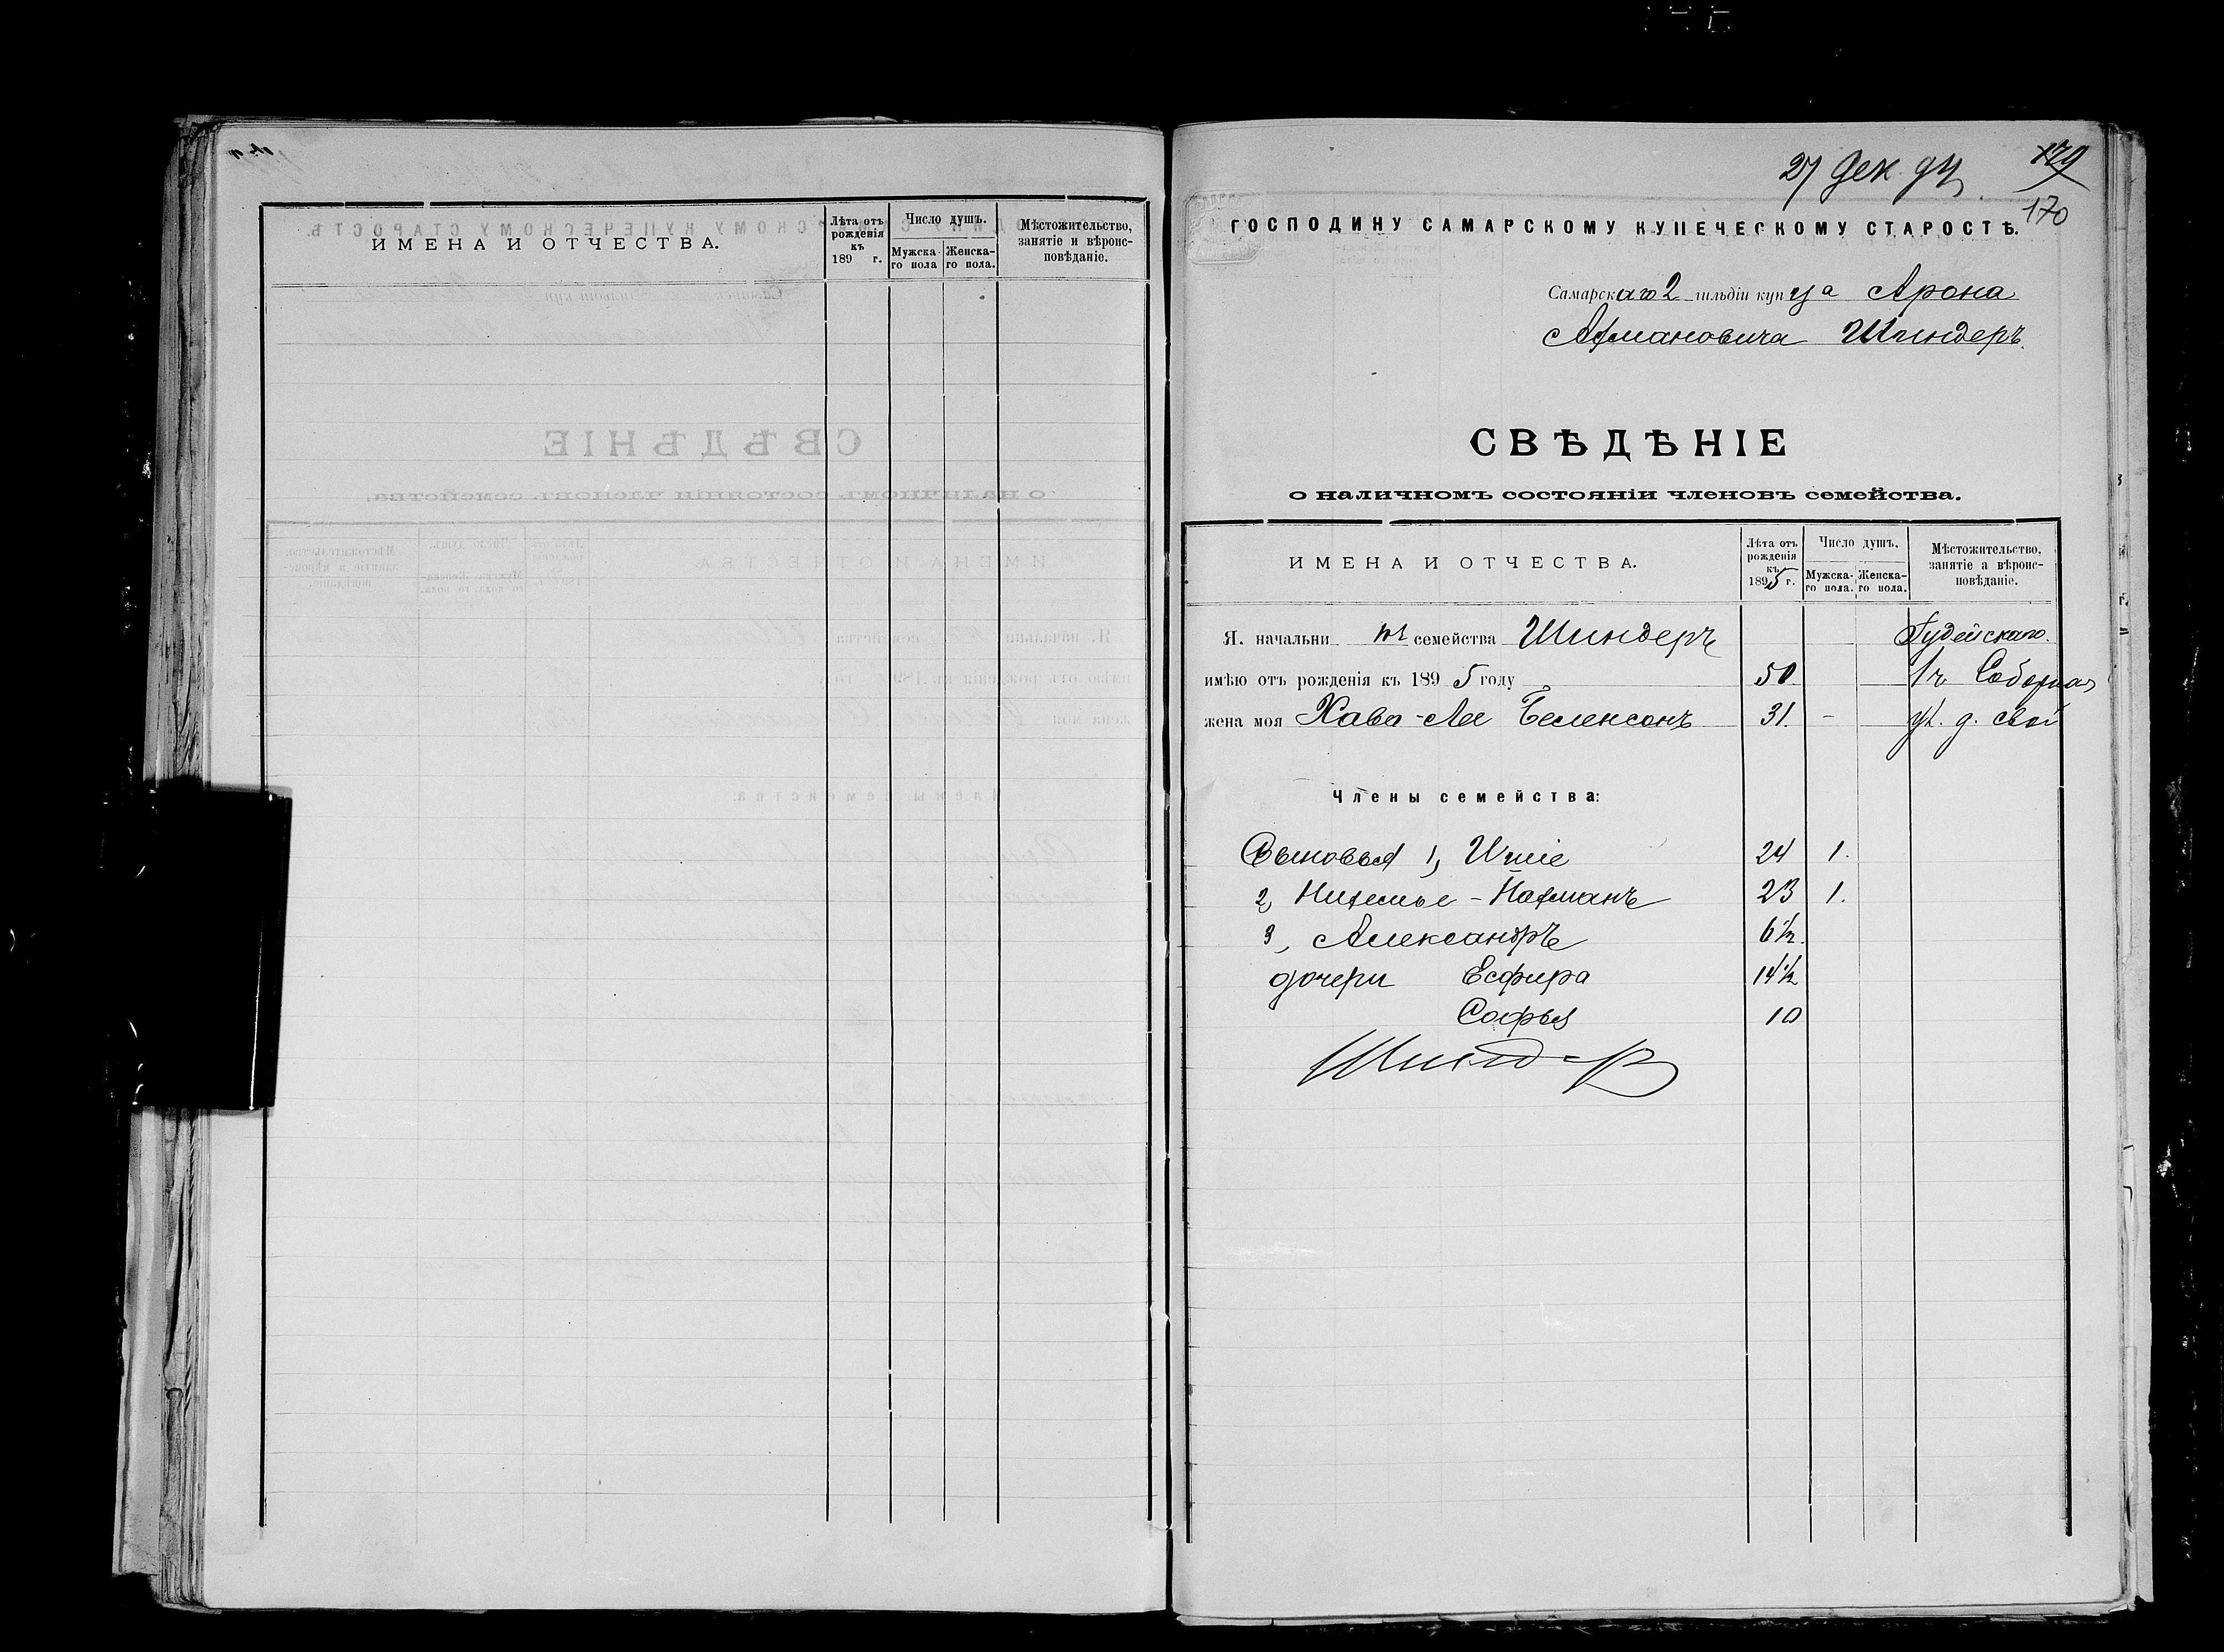 ИМЕНА И ОТЧЕСТВА.
Лѣта отъ рожденія къ 189 г.
Число душъ.
Мужска-го пола
Женска-го пола.
Мѣстожительство, занятіе и вѣроис-повѣданіе.
27 дек. 94
179
170
ГОСПОДИНУ САМАРСКОМУ КУПЕЧЕСКОМУ СТАРОСТѢ.
Самарскаго 2 гильдіи купца Арона
Шиндеръ.
СВѢДѢНІЕ
о наличномъ состояніи членовъ семейства.
ИМЕНА И ОТЧЕСТВА.
Лѣта отъ рожденія къ 1895 г.
Число душъ.
Мужска-го пола.
Женска-го пола.
Мѣстожительство, занятіе а вѣроис-повѣданіе.
Я. начальникъ семейства Шиндеръ Іудейскаго.
имѣю отъ рожденія къ 1895 году 50 1ч Соборная
жена моя Хава-Лея Беленсонъ 31. - ул. д. свой
Члены семейства:
Сыновья 1, 24 1.
2, 23 1.
3, Александръ 6½.
дочери Есфира 14½
Софья 10
Шиндеръ